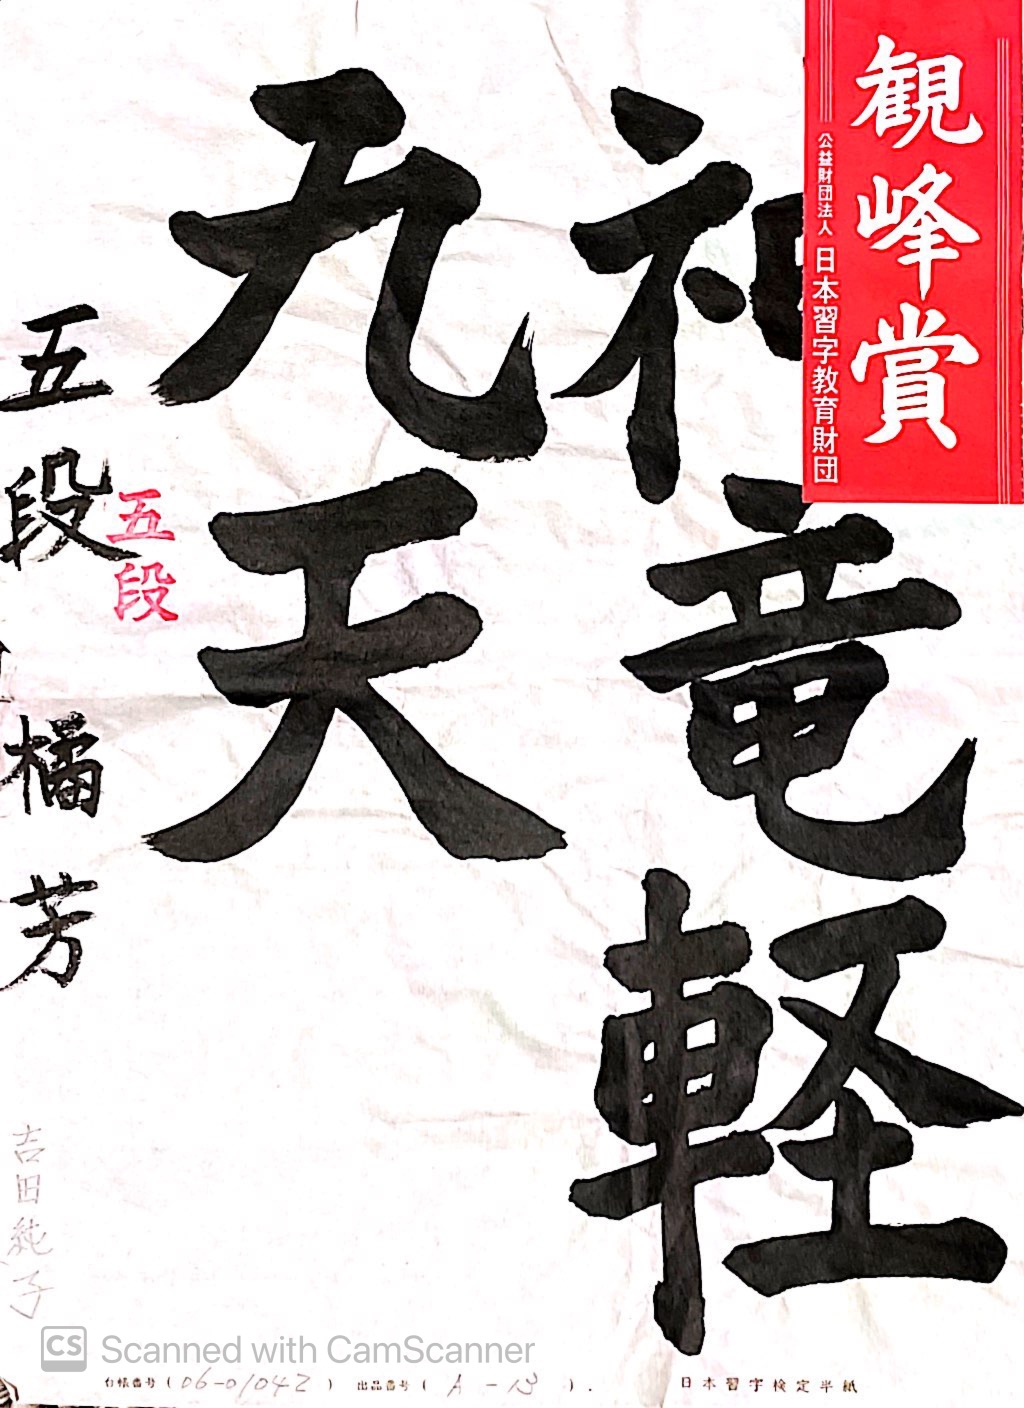 観峰賞
公益財団法人 日本習字教育財団
神竜軽
九天
五段
五段 橘芳
吉田純子
CS Scanned with CamScanner
台帳番号 ( 06-01042 ) 出品番号 ( A - 13 ) .
日本習字検定半紙